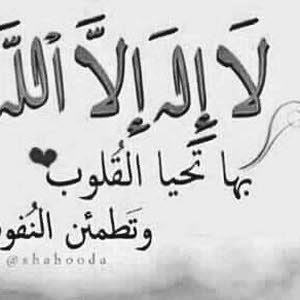 لَا إِلَهَ إِلَّا ٱللَّ
بها تَحيا القُلوب
وتَطمئن النُفو
@shahooda